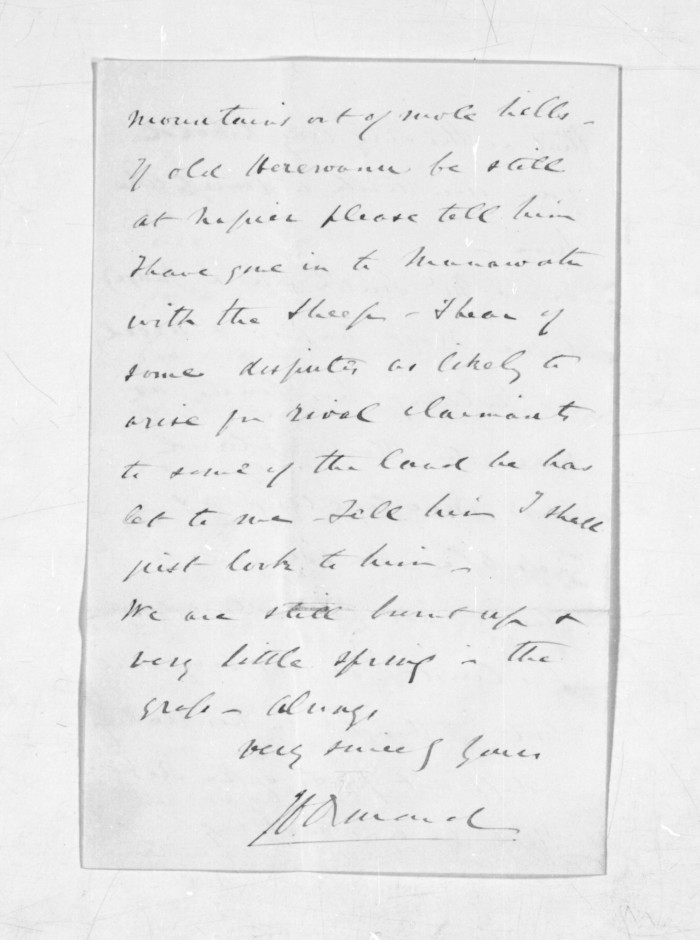 mountains out of mole hills -
If old Herewanu be still
at Napier please tell him
I have gone in to Manawatu
with the sheep - I hear of
some disputes as likely to
arise fm rival claimants
to some of the land he has
let to me - Tell him I shall
just look to him -
We are still burnt up &
very little spring in the
grass - Always
very sincely yours
JD Ormond